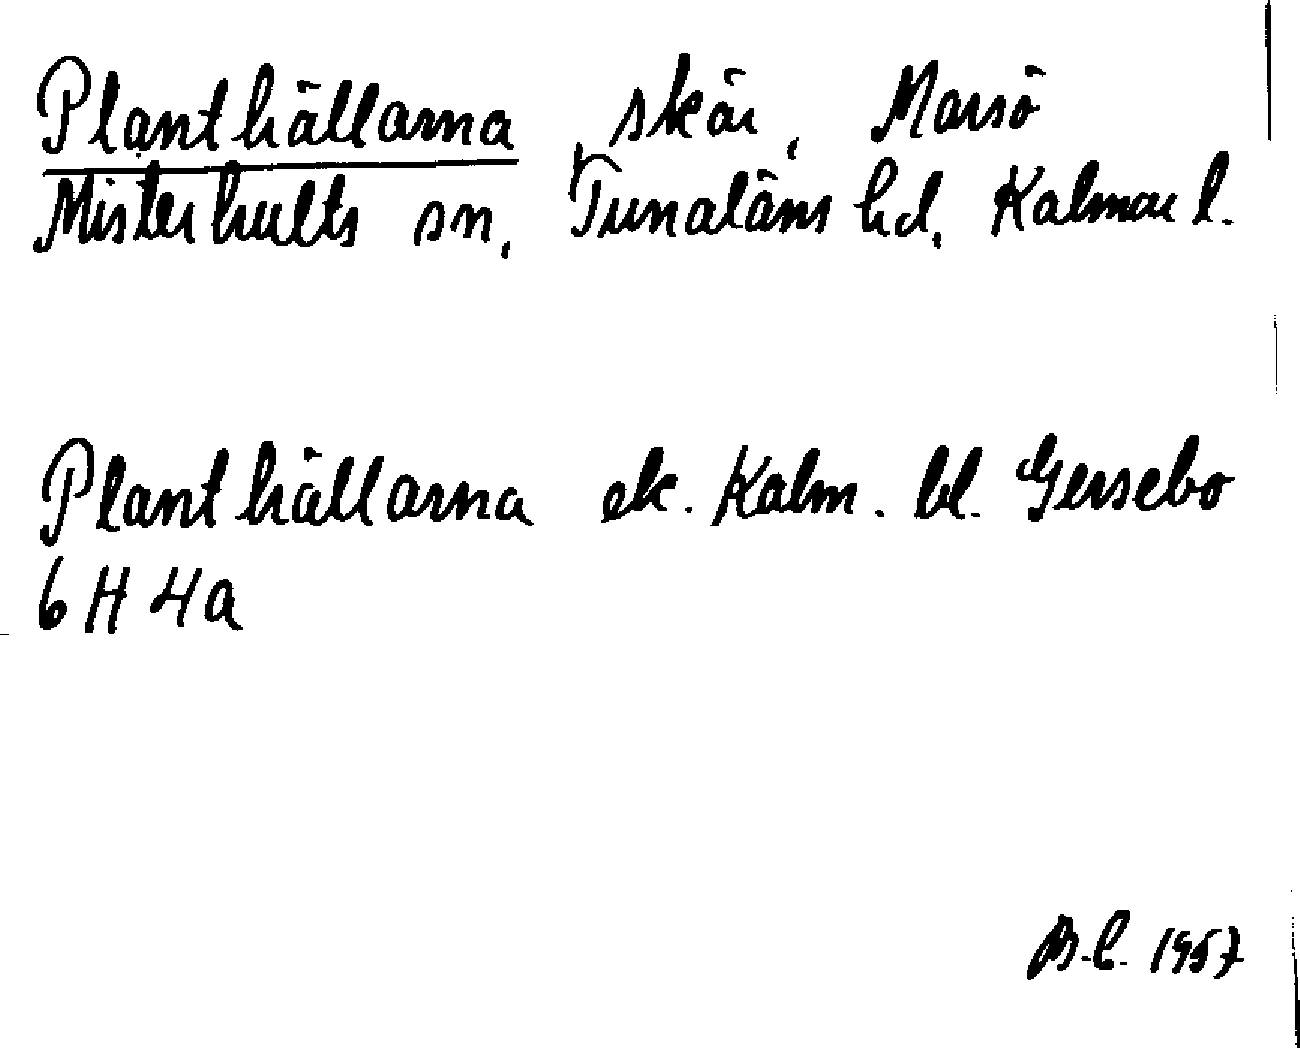 Planthällarna, skär, Marsö
Misterhults sn, Tunaläns hd, Kalmar l.
Planthällarna ek. Kalm. bl. Gersebo
6H 4a
B.L. 1957